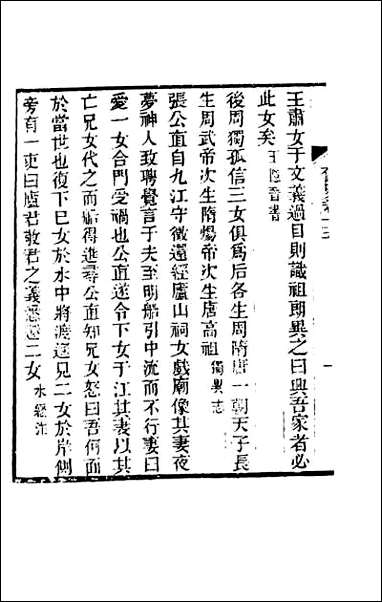 王肅女于文義過目則識祖朗異之曰興吾家者必
此女矣王隱晉書
後周獨孤信三女俱爲后各生周隋唐一朝天子長
生周武帝次生隋煬帝次生唐高祖獨異志
張公直自九江守徵還經廬山祠女戲廟像其妻夜
夢神人致聘覺言于夫至明船引中流而不行妻曰
愛一女合門受禍也公直遂令下女于江其妻以其
亡兄女代之而船得進尋公直知兄女怒曰吾何面
於當世也復下已女於水中將渡遙見二女於岸側
旁有一吏曰廬君敬君之義悉還二女水經注